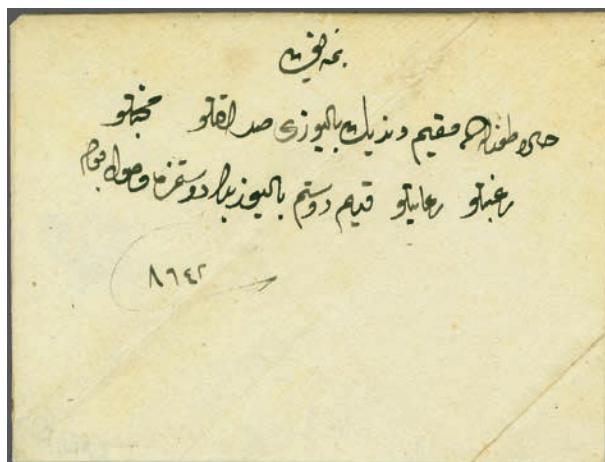 بمنه تعالى
مقيم ونديك باليوزى صداقتلو محبتلو
رغبتلو رعايتلو قديم دوستم باليوز بك دوستمزه وصول بوله
٨٦٤٢